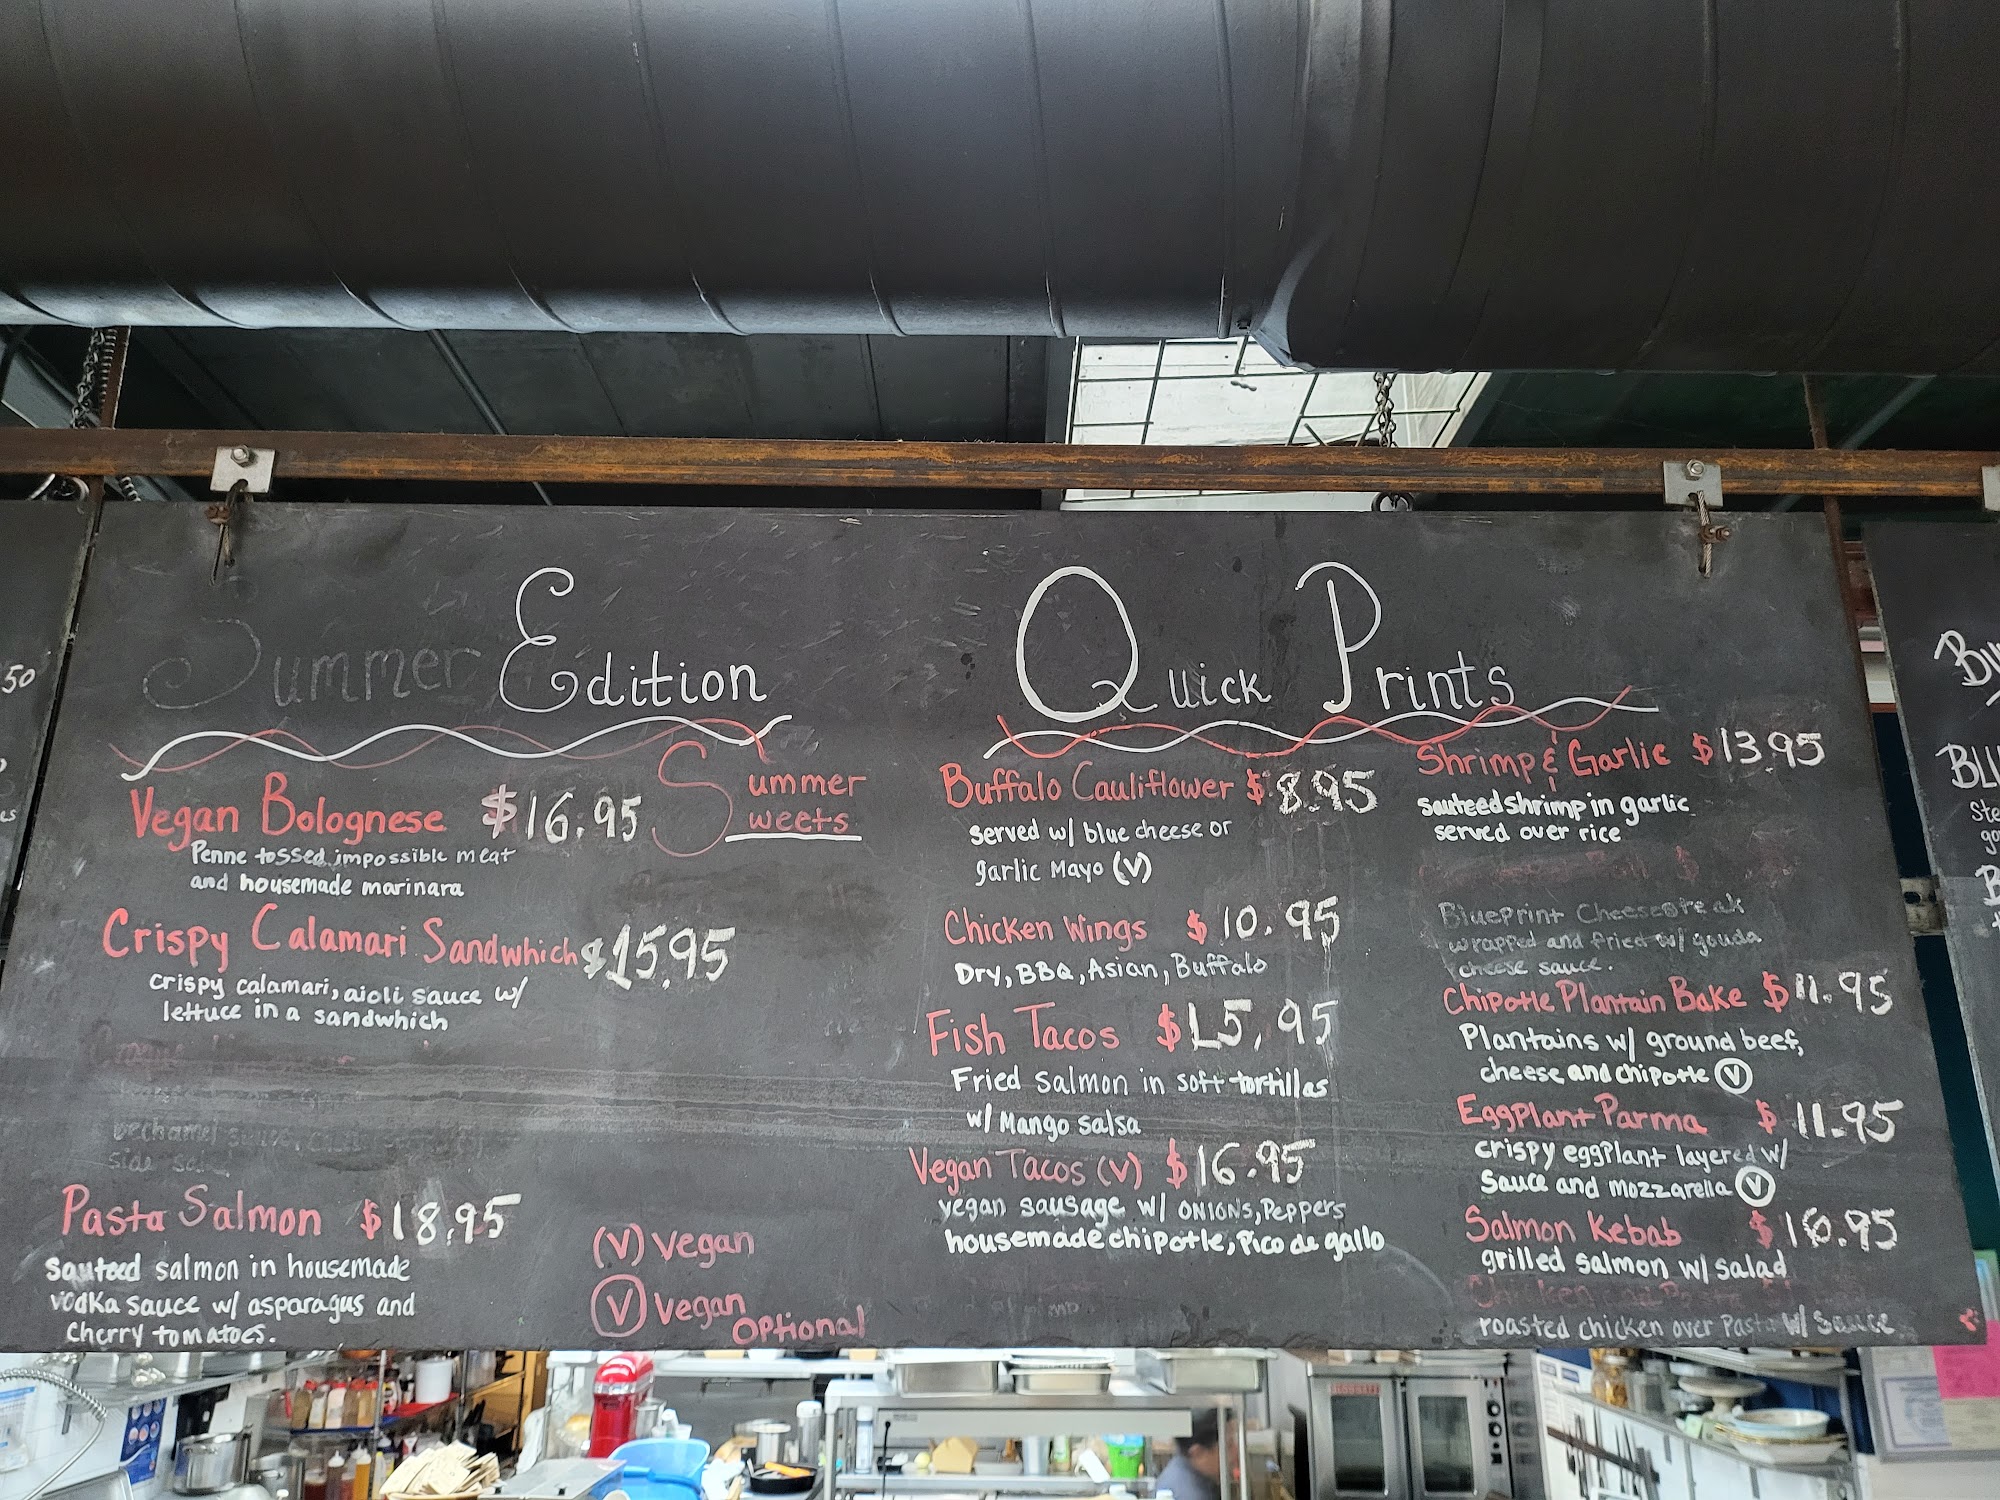 Summer Edition
Vegan Bolognese $16.95
Penne tossed impossible meat
and housemade marinara
Summer
Sweets
Crispy Calamari Sandwhich $15.95
crispy calamari, aioli sauce w/
lettuce in a sandwhich
bechamel sauce,
side
Pasta Salmon $18.95
sauteed salmon in housemade
vodka sauce w/ asparagus and
cherry tomatoes.
(V) Vegan
V Vegan
Optional
Quick Prints
Buffalo Cauliflower $8.95
served w/ blue cheese or
garlic Mayo (V)
Chicken Wings $10.95
Dry, BBQ, Asian, Buffalo
Fish Tacos $15.95
Fried salmon in soft tortillas
w/ Mango salsa
Vegan Tacos (V) $16.95
vegan sausage w/ onions, Peppers
housemade chipotle, Pico de gallo
Shrimp & Garlic $13.95
sauteed shrimp in garlic
served over rice
Blueprint Cheesesteak
wrapped and fried w/ gouda
cheese sauce.
Chipotle Plantain Bake $11.95
Plantains w/ ground beef,
cheese and chipotle V
Eggplant Parma $11.95
crispy eggplant layered w/
sauce and mozzarella V
Salmon Kebab $16.95
grilled salmon w/ salad
Chicken Pasta
roasted chicken over Pasta w/ Sauce
50